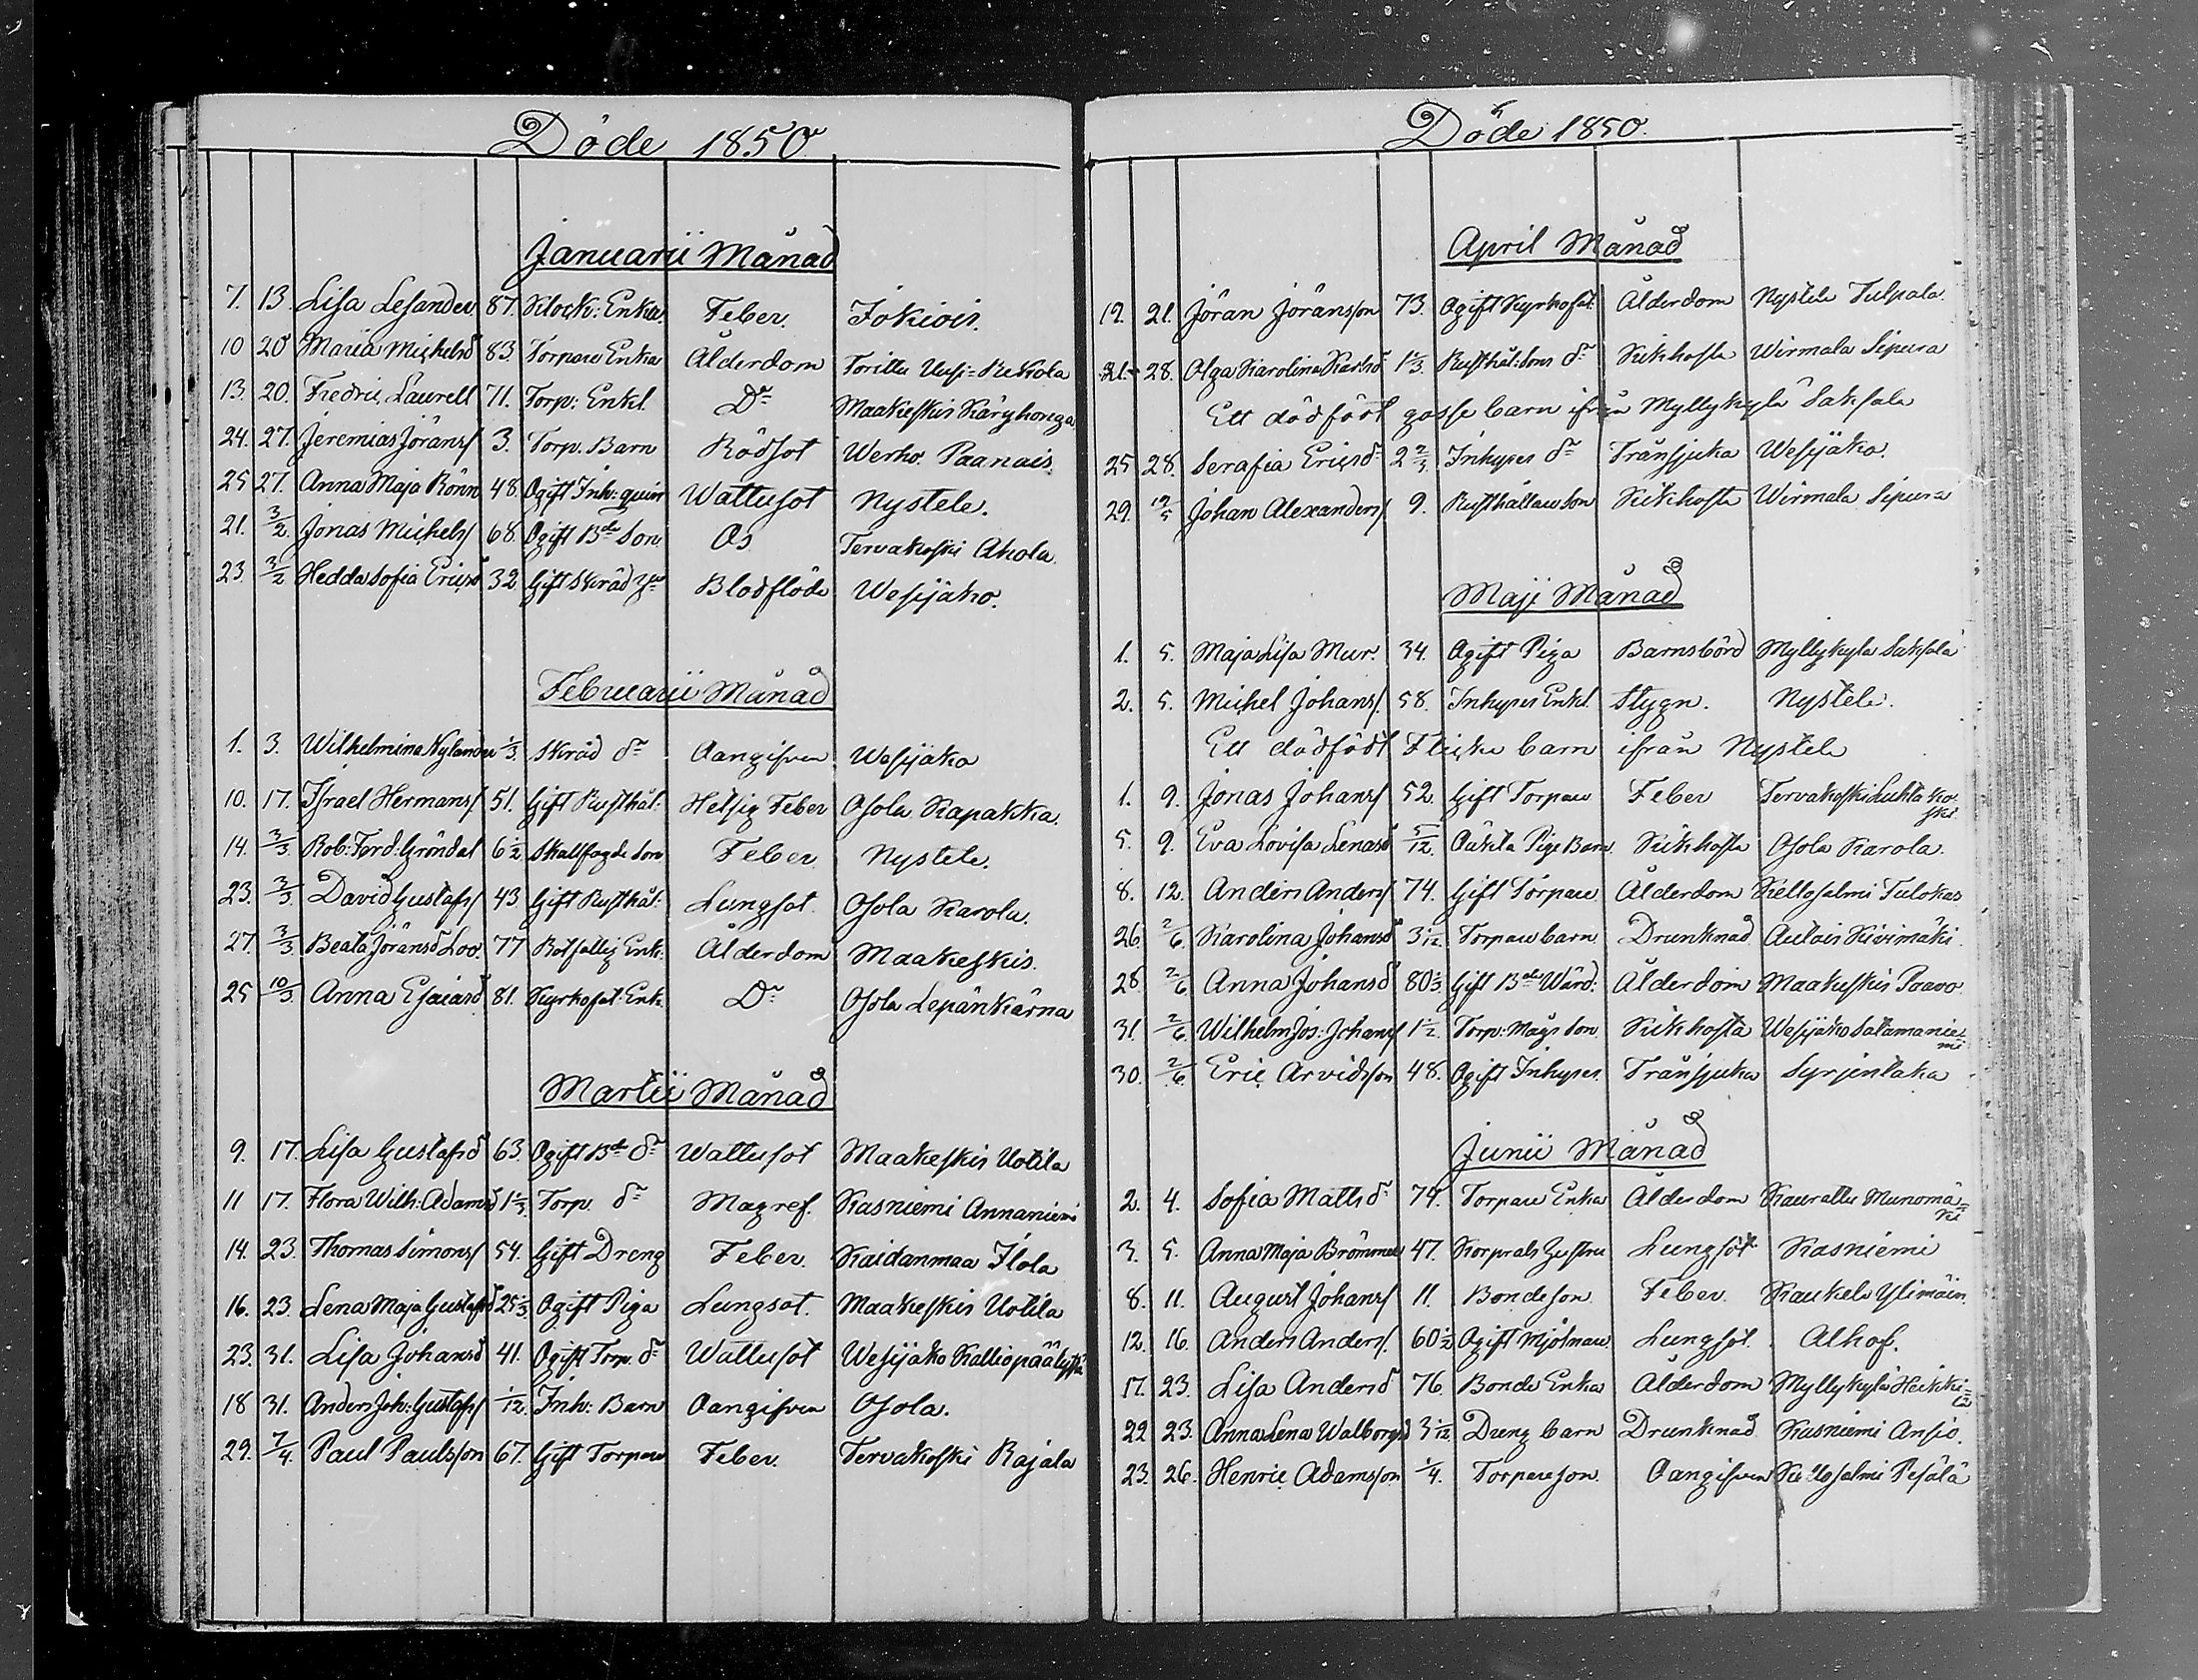 Döde 1850.
Januarii Månad
7. 13. Lisa Lesander 87. Klock: Enka. Feber. Jokiois.
10 20 Maria Michelsd 83. Torpare Enka Ålderdom Torittu Uusi=Kekkola
13. 20. Fredric Laurell 71. Torp: Enkl. Do Maakeskis Käryhonga
24. 27. Jeremias Jöranss 3. Torp. Barn Rödsot Werho Paanais.
25 27. Anna Maja Rönn 48. Ogift Inh: quin Wattusot Nystele.
21. 3/2. Jonas Michelss 68. Ogift Bde Son Os Tervakoski Ahola.
23. 3/2 Hedda Sofia Ericsd 32 Gift Skräd Blodflöde Wesijako.
Februarii Månad
1. 3. Wilhelmina Nylander 1/3. Skräd dr Oangifven Wesijako
10. 17. Israel Hermanss 51. Gift Rusthål: Hetsig Feber Osola Rapakka.
14. 3/3. Rob: Ferd: Gröndal 6 1/2 Skallfogde Son Feber Nystele.
23. 3/3. David Gustafss 43 Gift Rusthål: Lungsot. Osola Karola.
27. 3/3 Beata Jöransd Loo. 77 Rotfallig Enk: Ålderdom Maakeskis.
25 10/3 Anna Esaiasd 81. Kyrkosat: Enk. Do Osola Lepänkärna
Martii Månad
9. 17. Lisa Gustafsd 63. Ogift Bde dr Wattusot Maakeskis Uotila
11 17. Flora Wilh: Adamsd 1 1/3. Torp. dr Magref. Kasniemi Annaniemi
14. 23. Thomas Simonss 54. Gift Dreng Feber. Kaidanmaa Ilola
16. 23. Lena Maja Gustafsd 25 1/3 Ogift Piga Lungsot. Maakeskis Uotila
23. 31. Lisa Johansd 41. Ogift Torp. dr Wattusot Wesijako Kalliopää
18 31. Anders Joh: Gustafss 1/12. Inh: Barn Oangifven Osola.
29. 7/4. Paul Paulsson 67. Gift Torpare Feber. Tervakoski Rajala
Döde 1850.
April Månad
12. 21. Jöran Jöransson 73. Ogift Kyrkosat: Ålderdom Nystele Tulpala.
21. 28. Olga Karolina Karlsd 1 1/3. Rusthål: Sons dr Kikhosta Wirmala Sipura
Ett dödfödt gosse barn ifrån Myllykylä Saksala
25 28. Serafia Ericsdr 2 2/3. Inhyses dr Trånsjuka Wesijako.
29. 12/5 Johan Alexanderss 9. Rusthållare Son Kikhosta Wirmala Sipura
Maji Månad
1. 5. Maja Lisa Mur. 34. Ogift Piga Barnsbörd Myllykylä Saksala
2. 5. Michel Johanss. 58. Inhyses Enkl. Stygn. Nystele.
Ett dödfödt Flicke barn ifrån Nystele
1. 9. Jonas Johanss 52. Gift Torpare Feber Tervakoski Luhtako=
ski.
5. 9. Eva Lovisa Lenasd 5/12. Oäkta Pige Barn. Kikhosta Osola Karola.
8. 12. Anders Anderss 74. Gift Torpare Ålderdom Kellosalmi Tulokas
26. 2/6. Karolina Johansd 3 1/12. Torpare barn Drunknad Autois Kivimäki.
28. 2/6 Anna Johansd 80 1/3. Gift Bde Wärd: Ålderdom Maakeskis Paavo
31. 2/6. Wilhelm Jos: Johanss 1 1/2. Torp: Mågs Son Kikhosta Wesijako Salamanie=
mi
30. 2/6. Eric Arvidsson 48. Ogift Inhyses. Trånsjuka Syrjentaka
Junii Månad
2. 4. Sofia Mattsdr 74. Torpare Enka Ålderdom Kauratte Munomä=
ki
3. 5. Anna Maja Brömmer 47. Korprals Hustru Lungsot Kasniemi
8. 11. August Johanss 11. Bondeson Feber Kaukela Ylimäin.
12. 16. Anders Anderss. 60 1/2 Ogift Mjölnare Lungsot. Alhof.
17. 23. Lisa Andersd 76. Bonde Enka Ålderdom Myllykylä Heikki=
lä
22 23. Anna Lena Walborgsd 3 1/12 Dreng barn Drunknad Kasniemi Ansio.
23. 26. Henric Adamsson 1/4. Torpareson. Oangifven Kellosalmi Pesälä